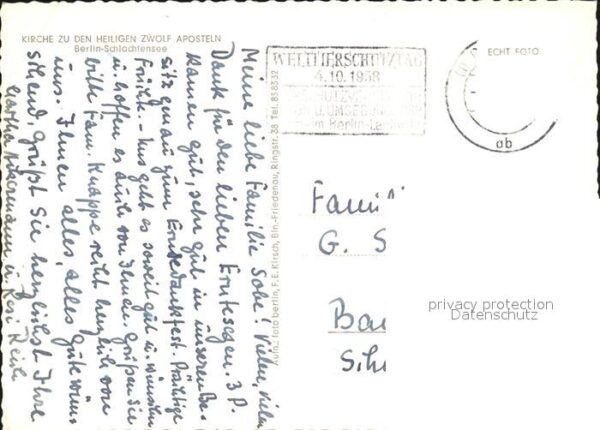 KIRCHE ZU DEN HEILIGEN ZWÖLF APOSTELN
Berlin-Schlachtensee
ECHT FOTO
WELTTIERSCHUTZTAG
4.10.1958
ab
Meine liebe Familie Sohe! Vielen, vielen
Dank für den lieben Erntesegen. 3 P.
kamen gut, sehr gut in unseren Be-
sitz genau zum Erntedankfest. Prächtige
Früchte - uns geht es soweit gut u. wünschen
u. hoffen es auch von Ihnen. Grüßen Sie
bitte Fam. Knappe recht herzlich von
uns. Ihnen alles, alles Gute wün-
schend, grüßt Sie herzlichst Ihre
Aufn.: foto berlin, F. E. Kirsch, Bln.-Friedenau, Ringstr. 38 Tel. 838332
Famil
G. S
Bau
Sch
privacy protection
Datenschutz